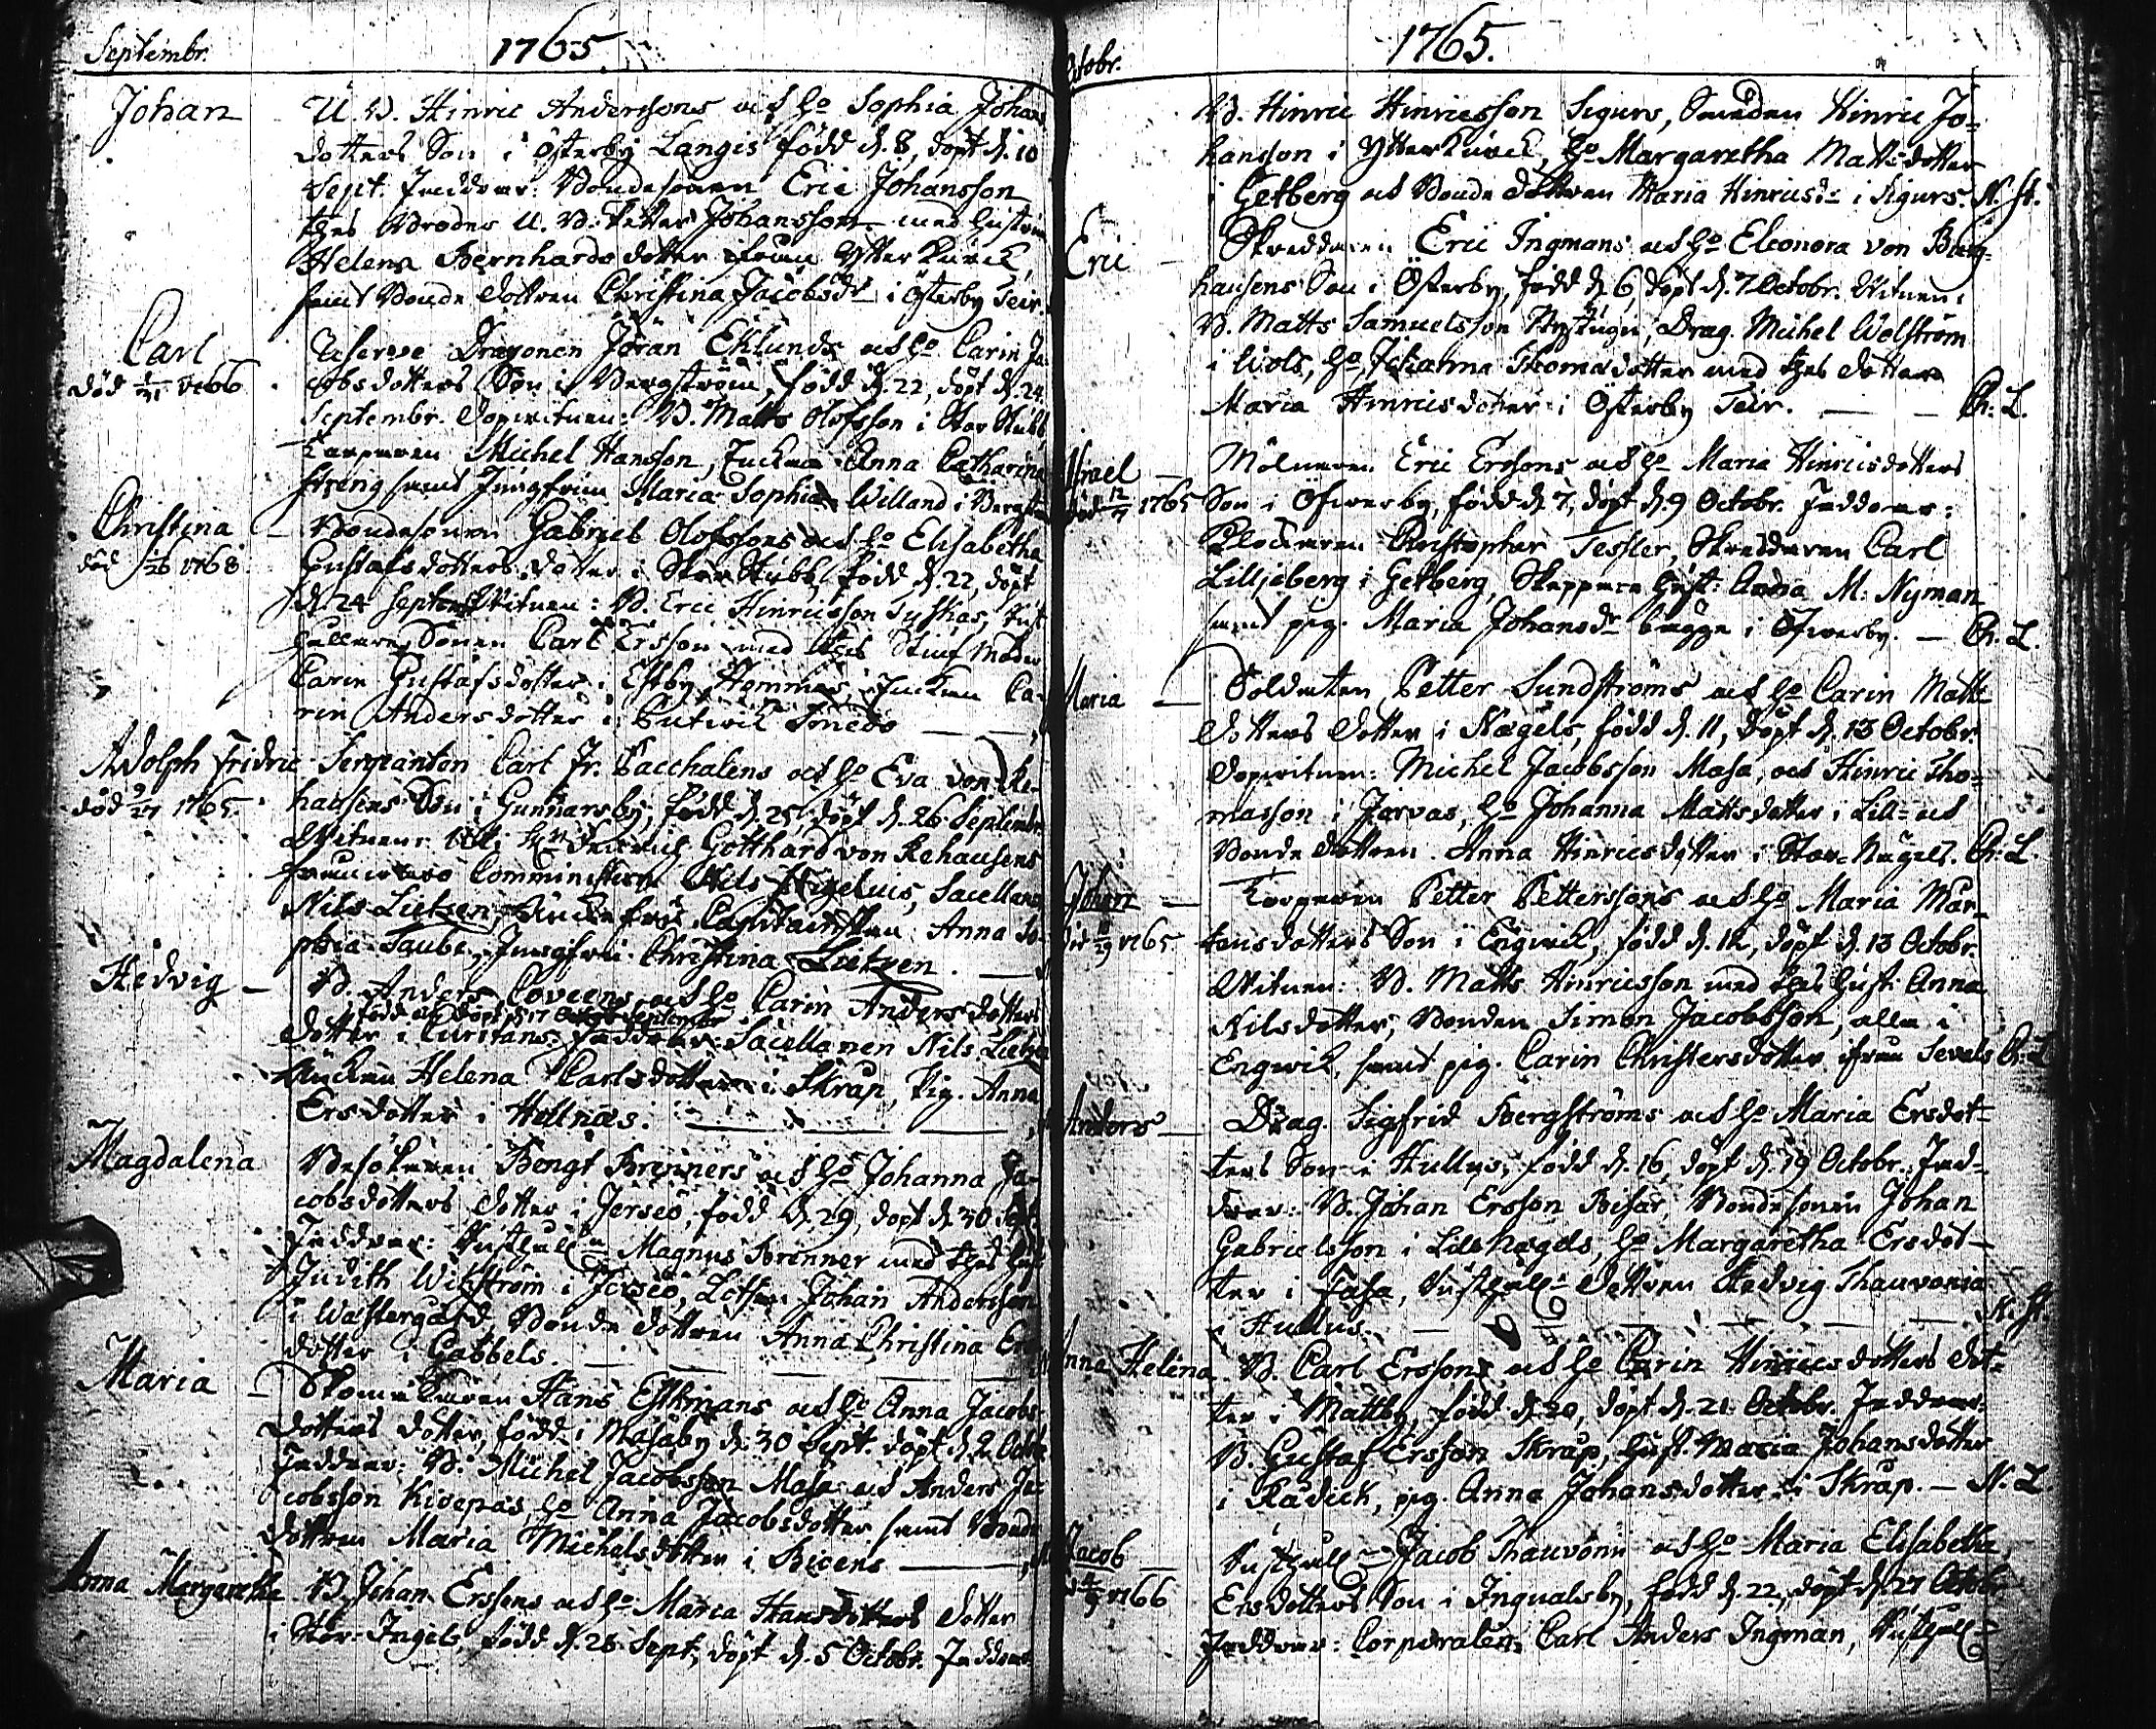 Septembr. 1765
Johan U. B. Hinric Anderssons och ho Sophia Johans
dotters Son i Österby Langis född d. 8, döpt d. 10
Sept. Faddrar: Bondesonen Eric Johansson
thes Broder U. B. Petter Johansson med hustrun
Helena Bernhards dotter ifrån Ytter
samt Bonde dottren Christina Jacobsdr i Österby Teir.
Carl Reserve Dragonen Jöran Eklunds och ho Carin Ja-
död 1766 cobsdotters Son i Bergström, född d. 22, döpt d. 24
Septembr. Dopvitnen: B. Matts Olofsson i Stor Stubb
Michel Hansson, Anna Catharina
samt Jungfrun Maria Sophia Willand i
Christina Bondesonen Gabriel Olofssons och ho Elisabetha
död 1768 Gustafsdotters dotter i Stor Stubb, född d. 22, döpt
d. 24 Septemb. Vitnen: B. Eric Hinricsson Tyskas,
Sonen Carl Ersson med thes Stiuf Moder
Carin Gustafsdotter i Estby Hemmas, Ca-
rin Andersdotter i
Adolph Fridric Sergeanten Carl Fr. Pacchalens och ho Eva von Re-
död 1765. hausens Son i Gunnarsby, född d. 25, döpt d. 26 Septembr.
Vitnen: Gotthard von Rehausens
Comministern Nils, Sacellanen
Nils Lietzen, Capitainskan Anna So-
phia Taube, Jungfru Christina Lietzen.
Hedvig B. Anders och ho Carin Andersdotters
född och döpt d. Septembr
dotter i Faddrar: Sacellanen Nils Lietzen
Helena Carlsdotter i Skrap, Pig. Anna
Ersdotter i Heltnäs.
Magdalena Besökaren Bengt Brenners och ho Johanna Ja-
cobsdotters dotter i Jorseö, född d. 29, döpt d. 30 Sept.
Faddrar: Magnus Brenner med thes
Judith Wikström i Jorseö, Johan Andersson
i Westergård, Bonde dottren Anna Christina Ers
dotter i Gabbels.
Maria Skomakaren Hans och ho Anna Jacobs
dotters dotter, född i Masaby d. 30 Sept. döpt d. 2 Octob.
Faddrar: B. Michel Jacobsson Masa och Anders Ja-
cobsson, ho Anna Jacobsdotter samt Bonde
dottren Maria Michelsdotter i
Anna Margaretha B. Johan Erssons och ho Maria Hansdotters dotter
i Stor-Ingels, född d. 28 Sept, döpt d. 5 Octobr. Faddrar
Octobr. 1765.
B. Hinric Hinricsson Sigurs, Smeden Hinric Jo-
hansson i Ytter, ho Margaretha Mattsdotter
i Getberg och Bonde dottren Maria Hinricsdr i Sigurs. N. St.
Eric Skreddaren Eric Ingmans och ho Eleonora von Burg-
hausens Son i Österby, född d. 6, döpt d. 7 Octobr. Vitnen:
B. Matts Samuelsson, Drag. Michel Wolström
i Wols, ho Johanna Thomasdotter med thes dotter
Maria Hinricsdotter i Österby Teir. Ch. L.
Israel Mölnaren Eric Erssons och ho Maria Hinricsdotters
död 1765 Son i Öfwerby, född d. 7, döpt d. 9 Octobr. Faddrar:
Klockaren Christopher Tessler, Skreddaren Carl
Lilljeberg i Getberg, Skeppare hust. Anna M. Nyman
samt pig. Maria Johansdr bägge i Öfwerby. Ch. L.
Maria Soldaten Petter Sundströms och ho Carin Matts
dotters dotter i Nägels, född d. 11, döpt d. 13 Octobr.
Dopvitnen: Michel Jacobsson Masa, och Hinric Tho-
masson i Jarvas, ho Johanna Mattsdotter i Lill- och
Bonde dottren Anna Hinricsdotter i Stor-Nägels. Ch. L.
Johan Petter Petterssons och ho Maria Mår-
1765 tensdotters Son i Engwik, född d. 12, döpt d. 13 Octobr.
Vitnen: B. Matts Hinricsson med thes hust. Anna
Nilsdotter, Bonden Simon Jacobsson, alla i
Engwik, samt pig. Carin Christersdotter ifrån Sevals Ch. L
Anders Drag. Sigfrid Bergströms och ho Maria Ersdot-
ters Son i Hullus, född d. 16, döpt d. 19 Octobr. Fad-
drar: B. Johan Ersson Bisar, Bondesonen Johan
Gabrielsson i Lill Nägels, ho Margaretha Ersdot-
ter i Fasa, dottren Hedvig Thauvonia
i Hullus. N. St.
Anna Helena B. Carl Erssons och ho Carin Hinricsdotters dot-
ter i Mattby, född d. 20, döpt d. 21 Octobr. Faddrar:
B. Gustaf Ersson Skrap, hust. Maria Johansdotter
i Rädick, pig. Anna Johansdotter i Skrap. N. L.
Jacob Jacob Thauvonii och ho Maria Elisabetha
1766 Ersdotters Son i Ingvalsby, född d. 22, döpt d. 27 Octobr
Faddrar: Corporalen Carl Anders Ingman,